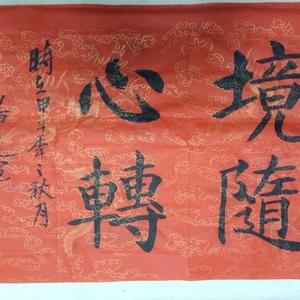 境隨
心轉
時在甲子年之秋月